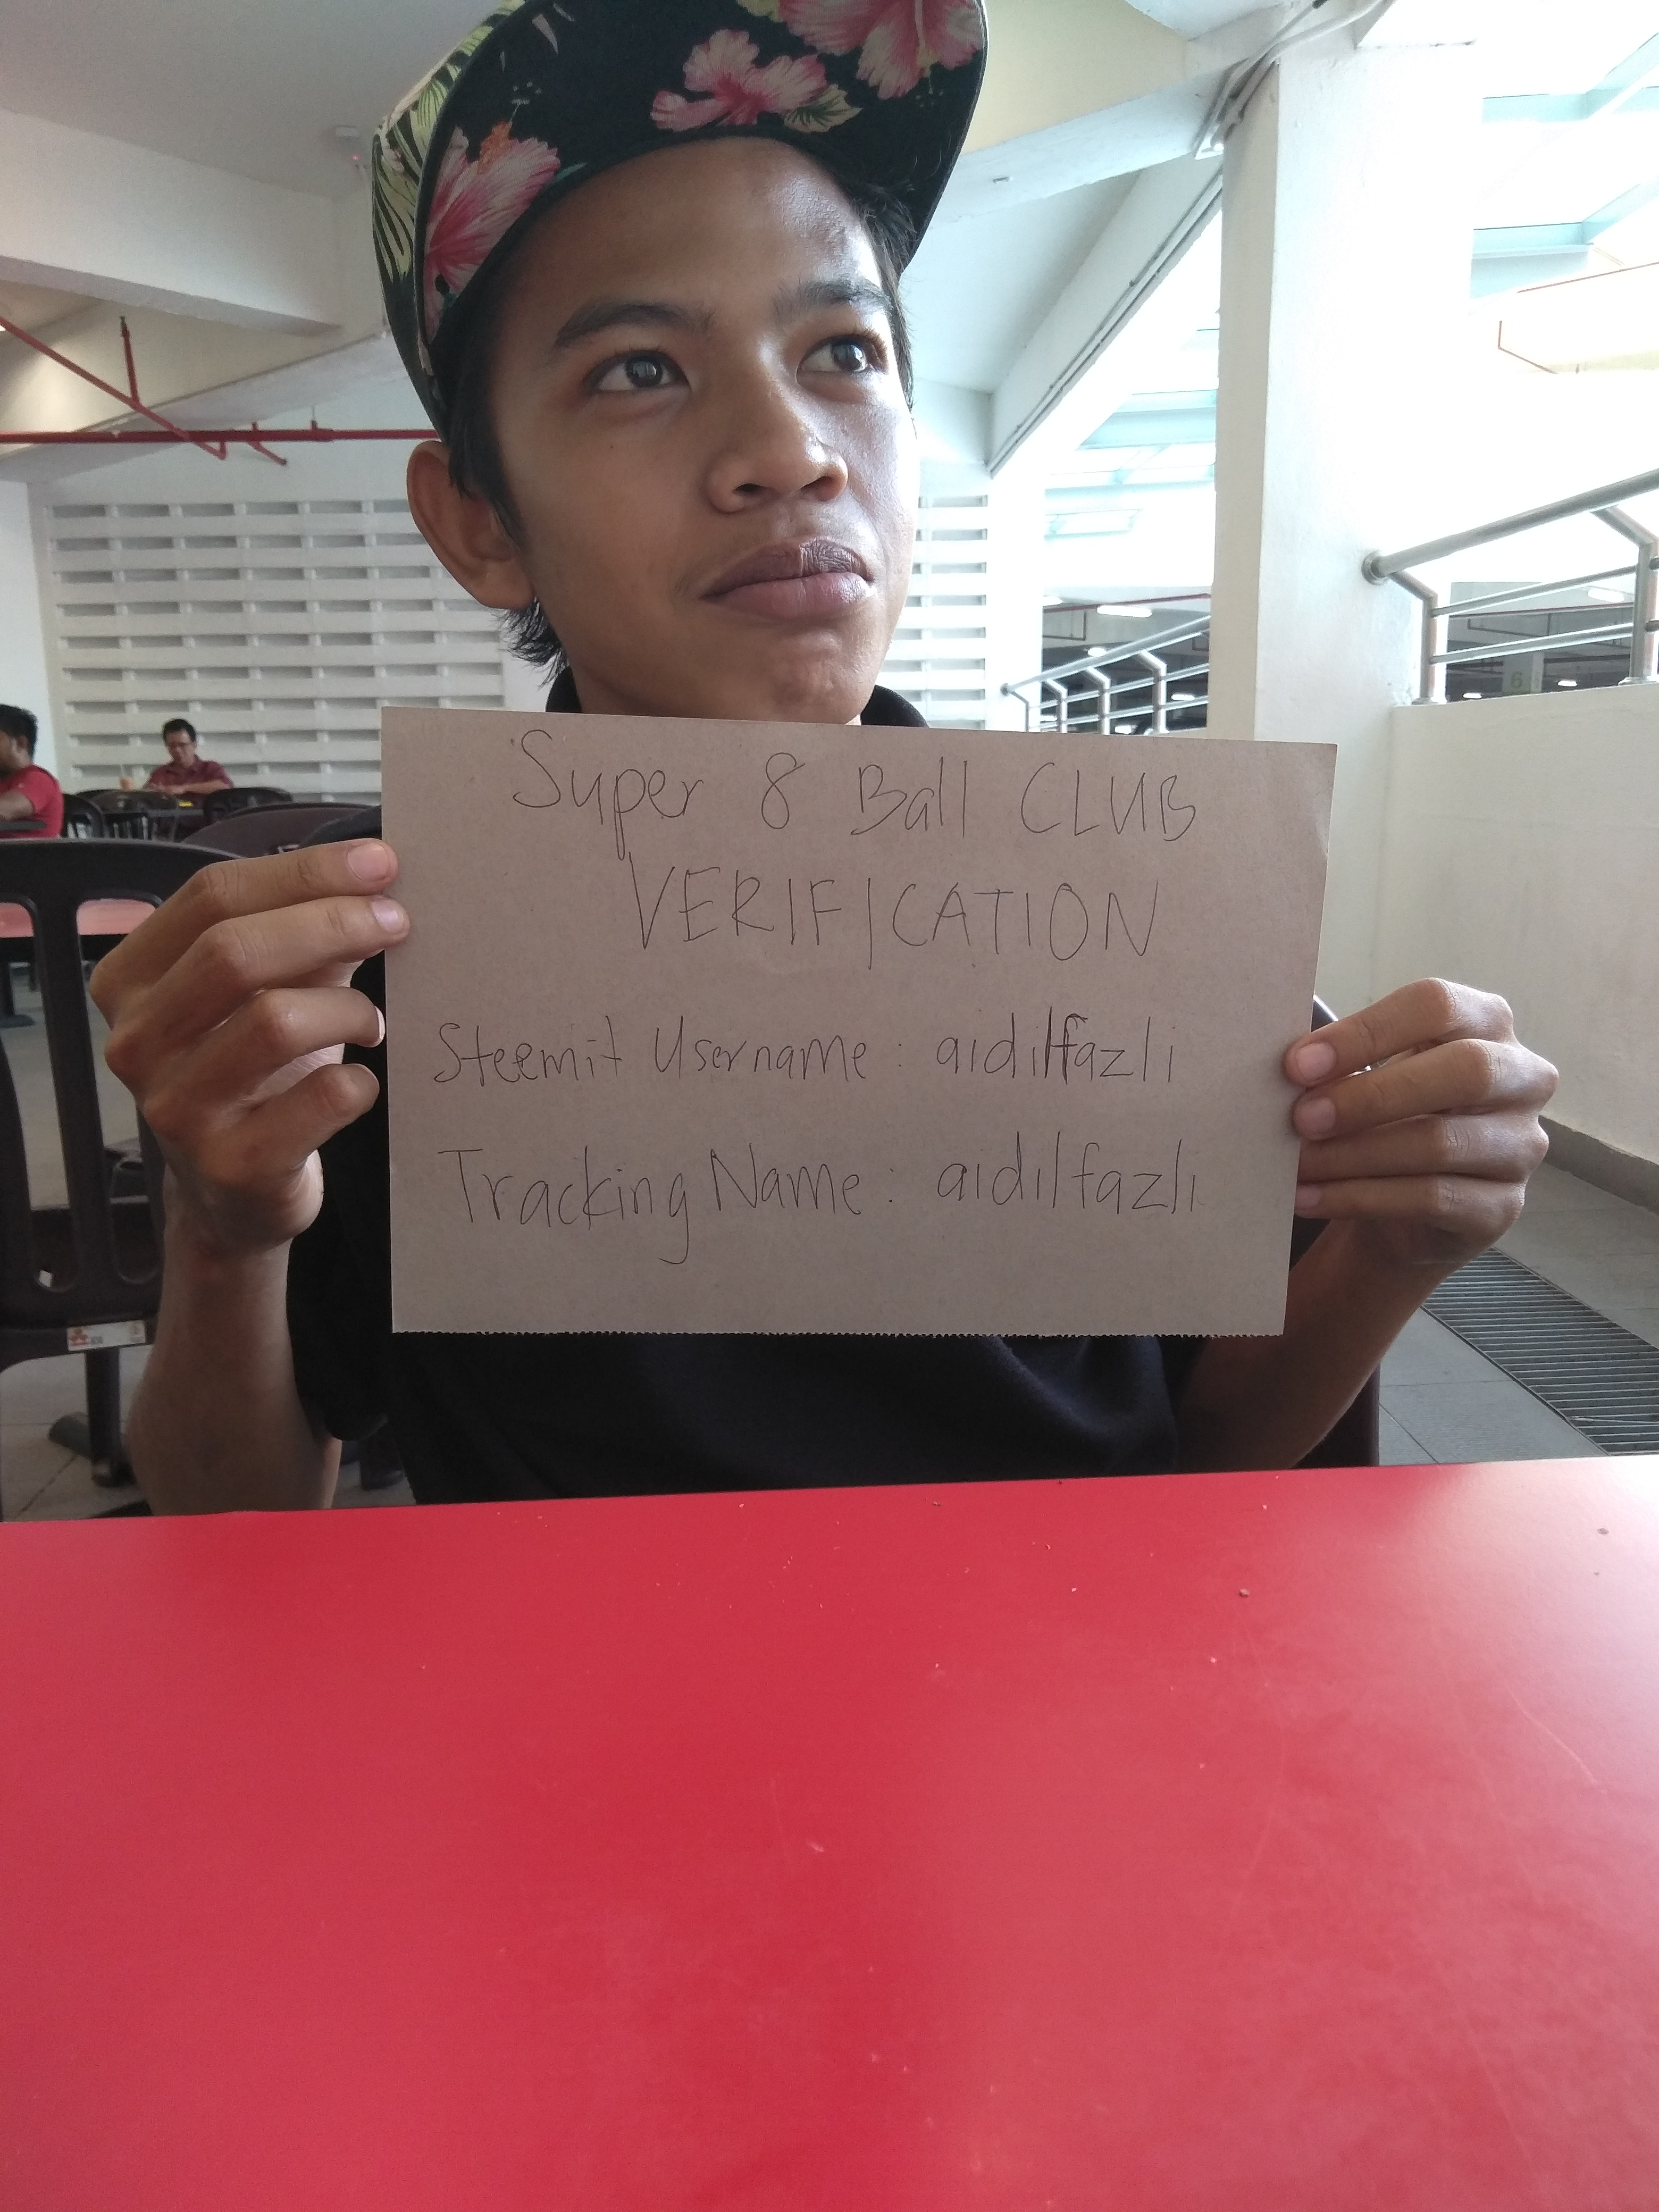 Super 8 Ball CLUB
VERIFICATION
Steemit Username : aidilfazli
Tracking Name : aidilfazli
6